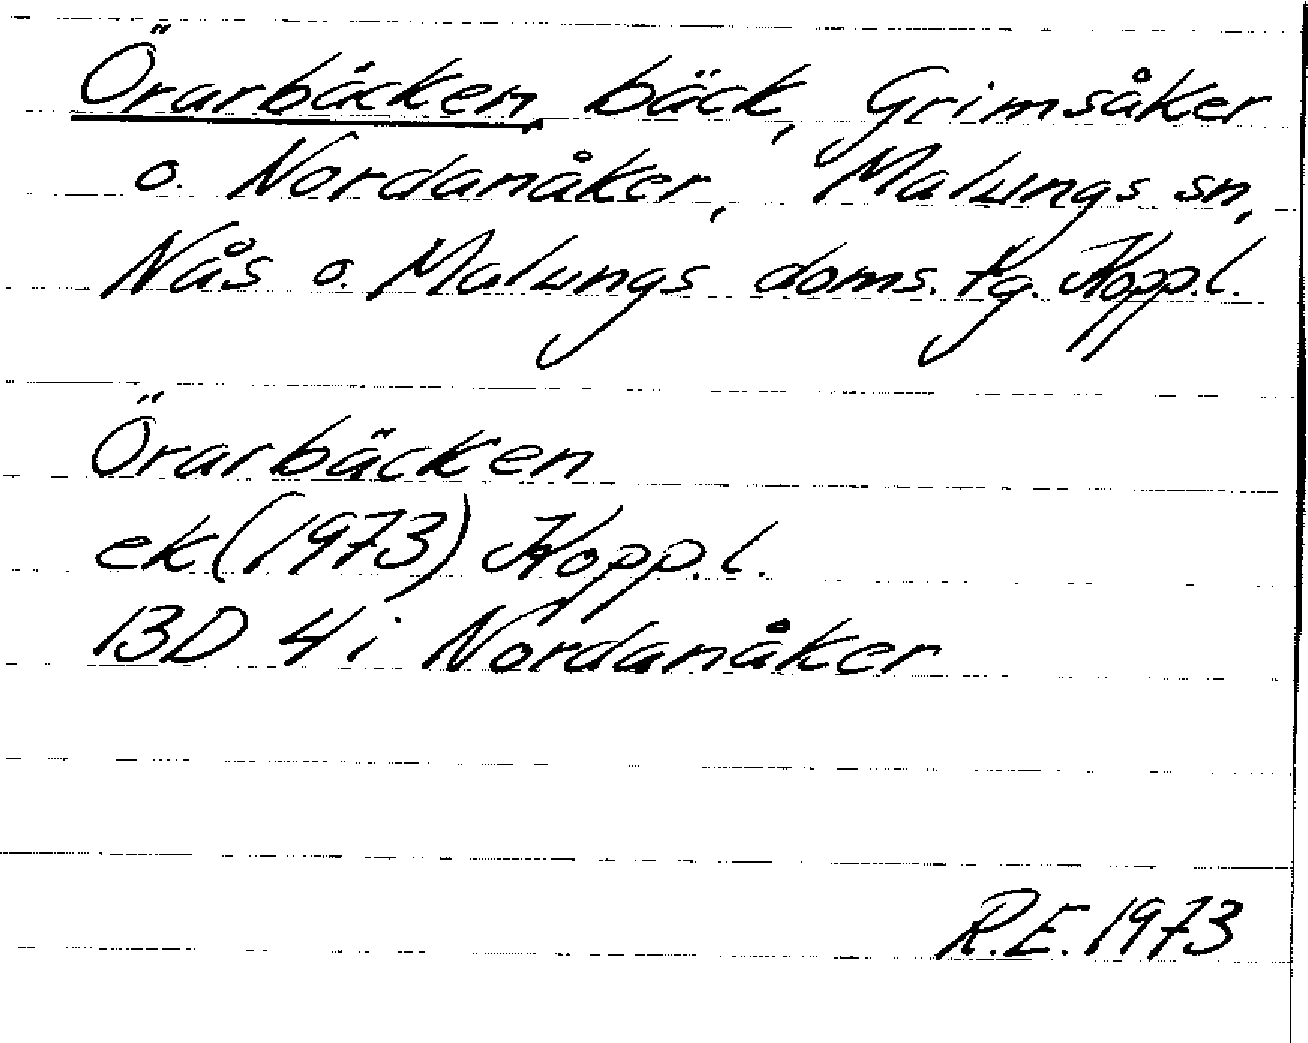 Örarbäcken, bäck, Grimsåker
o. Nordanåker, Malungs sn,
Nås o. Malungs doms. tg. Kopp.l.
Örarbäcken
ek (1973) Kopp.l.
BD 4 i Nordanåker
R.E. 1973